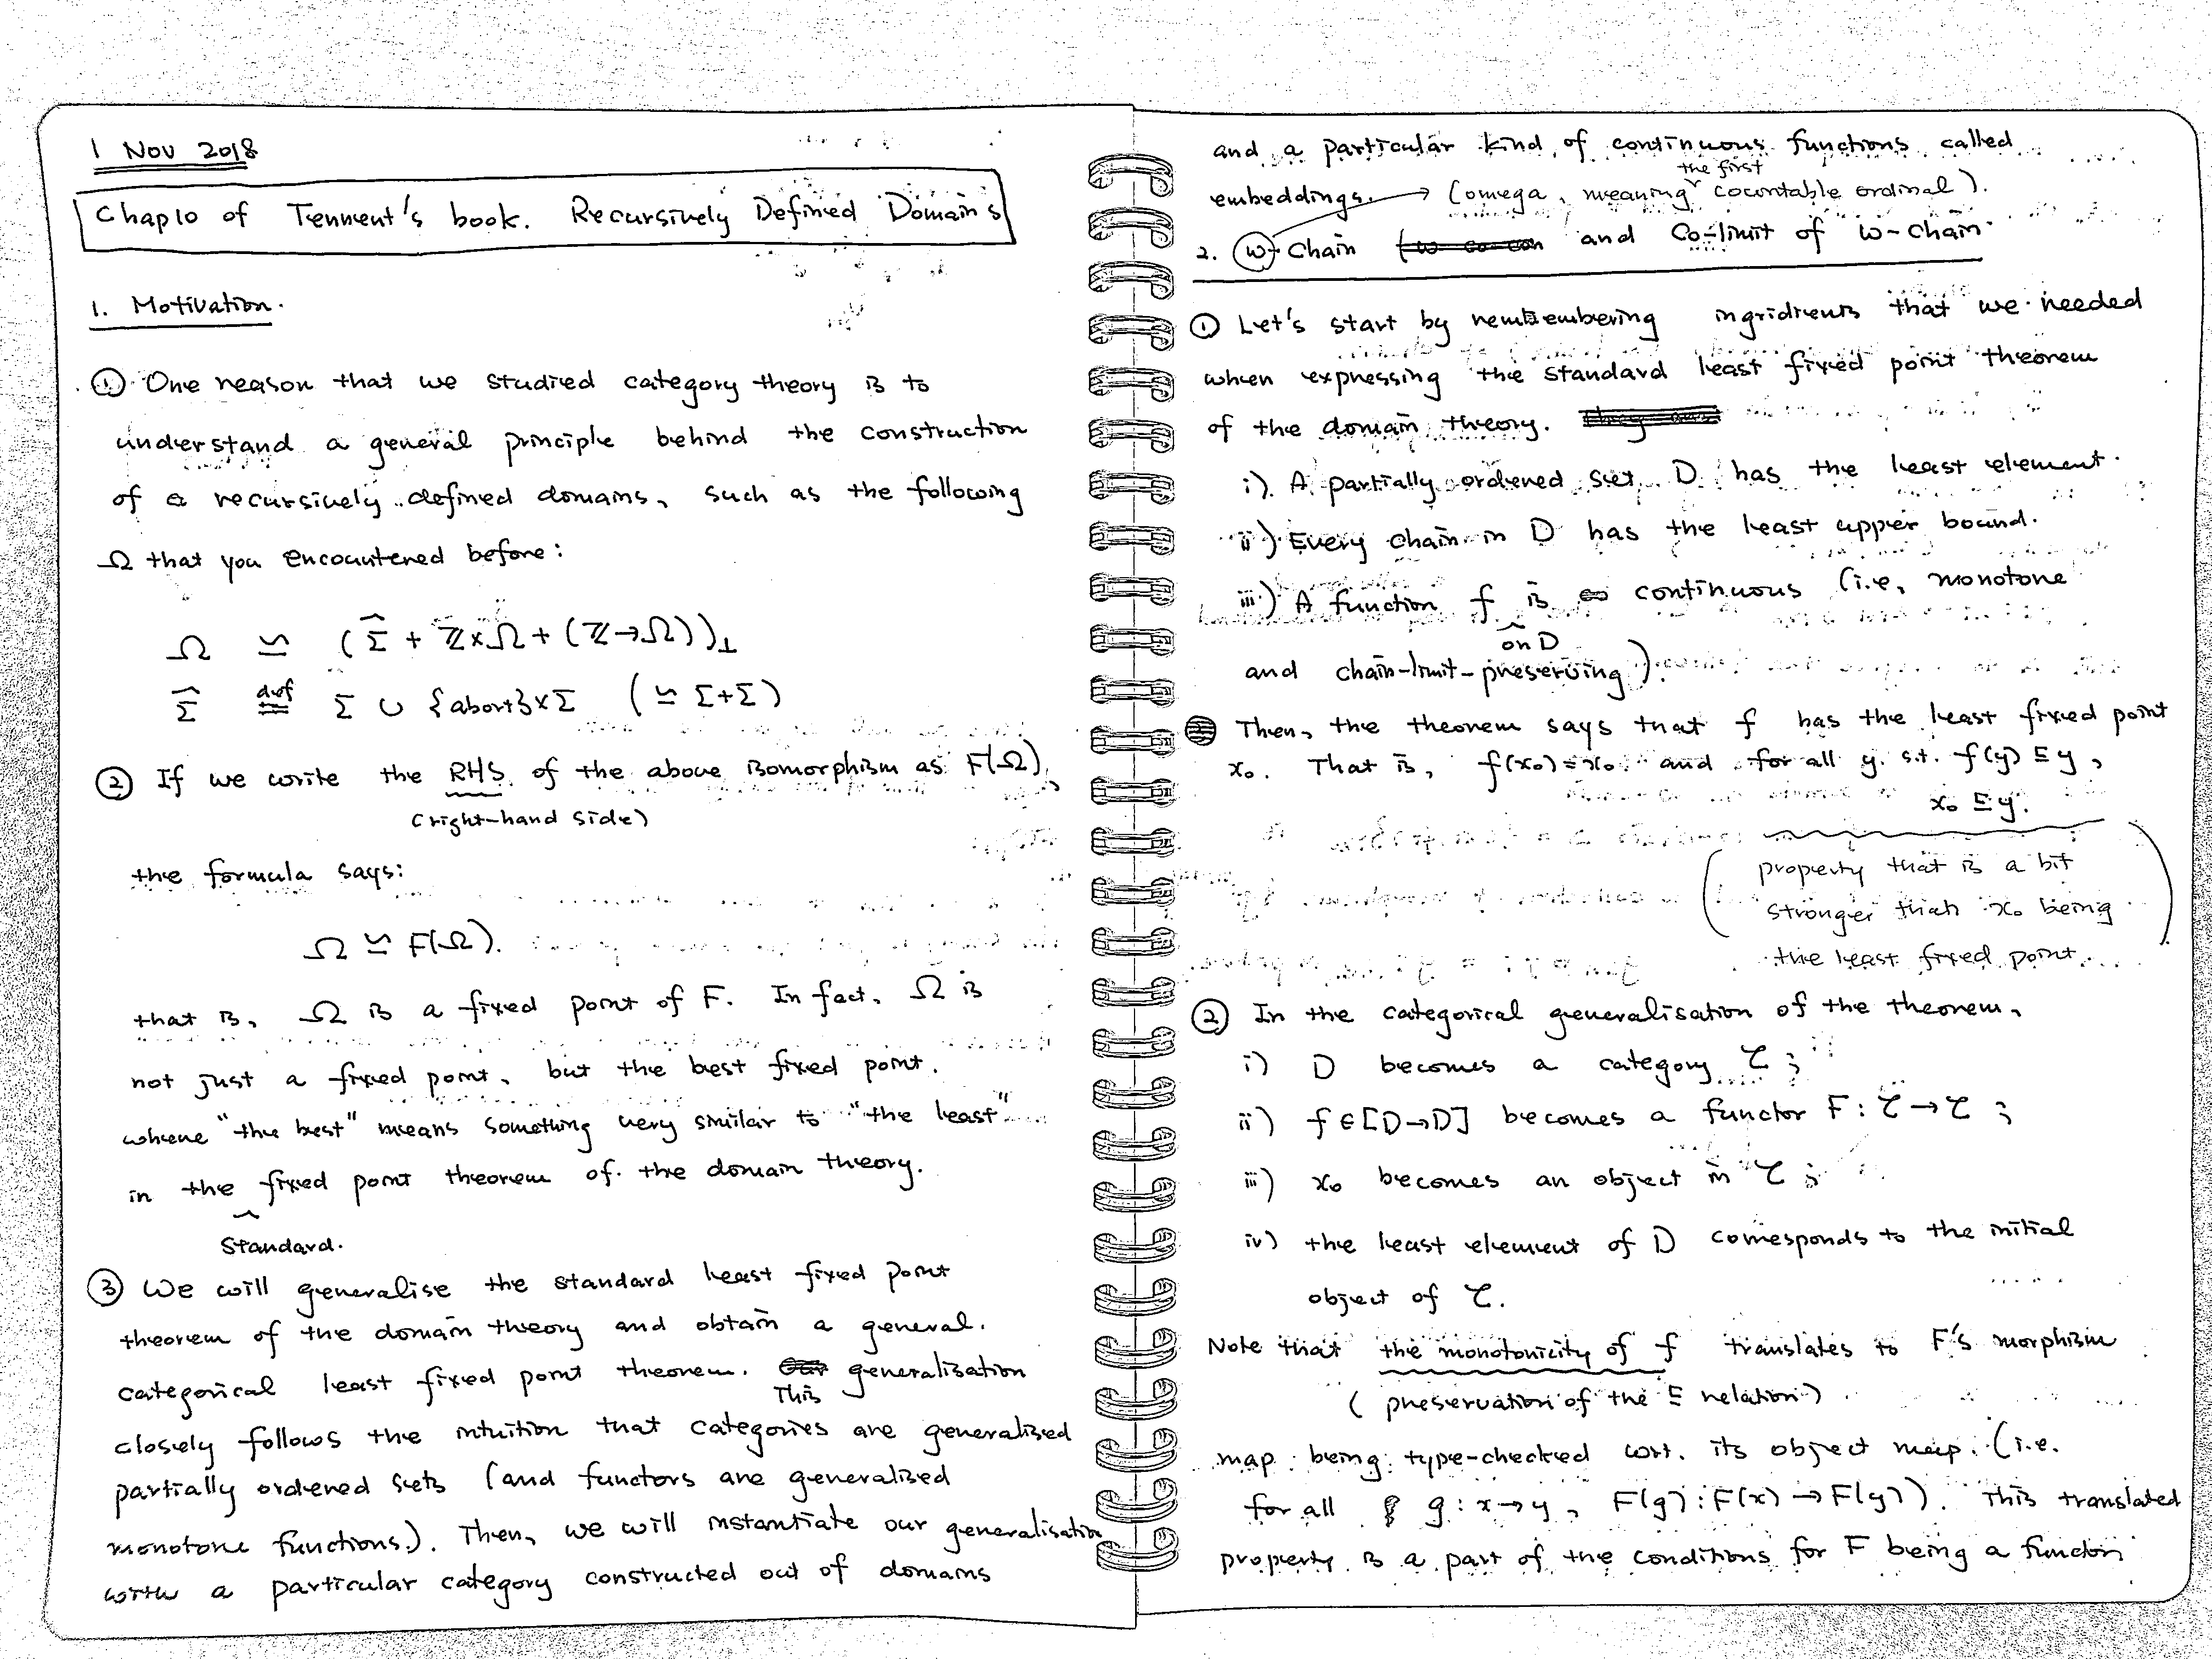 1 Nov 2018
Chap10 of Tennent's book. Recursively Defined Domains
1. Motivation.
① One reason that we studied category theory is to
understand a general principle behind the construction
of a recursively defined domains, such as the following
Ω that you encountered before:
Ω ≃ (Σ̂ + ℤ×Ω + (ℤ→Ω))⊥
Σ̂ def= Σ ∪ {abort}×Σ (≃ Σ+Σ)
② If we write the RHS of the above isomorphism as F(Ω),
(right-hand side)
the formula says:
Ω ≃ F(Ω).
that is, Ω is a fixed point of F. In fact, Ω is
not just a fixed point, but the best fixed point.
where "the best" means something very similar to "the least"
in the fixed point theorem of the domain theory.
standard.
③ We will generalise the standard least fixed point
theorem of the domain theory and obtain a general.
categorical least fixed point theorem. generalisation
This
closely follows the intuition that categories are generalised
partially ordered sets (and functors are generalised
monotone functions). Then, we will instantiate our generalisation
with a particular category constructed out of domains
and a particular kind of continuous functions called
the first
embeddings. → (omega, meaning cocuntable ordinal).
2. ω-Chain and Co-limit of ω-chain.
① Let's start by remembering ingridients that we needed
when expressing the standard least fixed point theorem
of the domain theory.
i) A partially ordered set D has the least element.
ii) Every chain in D has the least upper bound.
iii) A function f is continuous (i.e, monotone
on D
and chain-limit-preserving).
Then, the theorem says that f has the least fixed point
x₀. That is, f(x₀)=x₀ and for all y s.t. f(y) ⊑ y,
x₀ ⊑ y.
(property that is a bit
stronger than x₀ being
the least fixed point.)
② In the categorical generalisation of the theorem,
i) D becomes a category 𝒞 ;
ii) f∈[D→D] becomes a functor F: 𝒞→𝒞 ;
iii) x₀ becomes an object in 𝒞 ;
iv) the least element of D corresponds to the initial
object of 𝒞.
Note that the monotonicity of f translates to F's morphism
(preservation of the ⊑ relation)
map being type-checked wrt. its object map. (i.e.
for all g: x→y, F(g): F(x)→F(y)). This translated
property is a part of the conditions for F being a functor